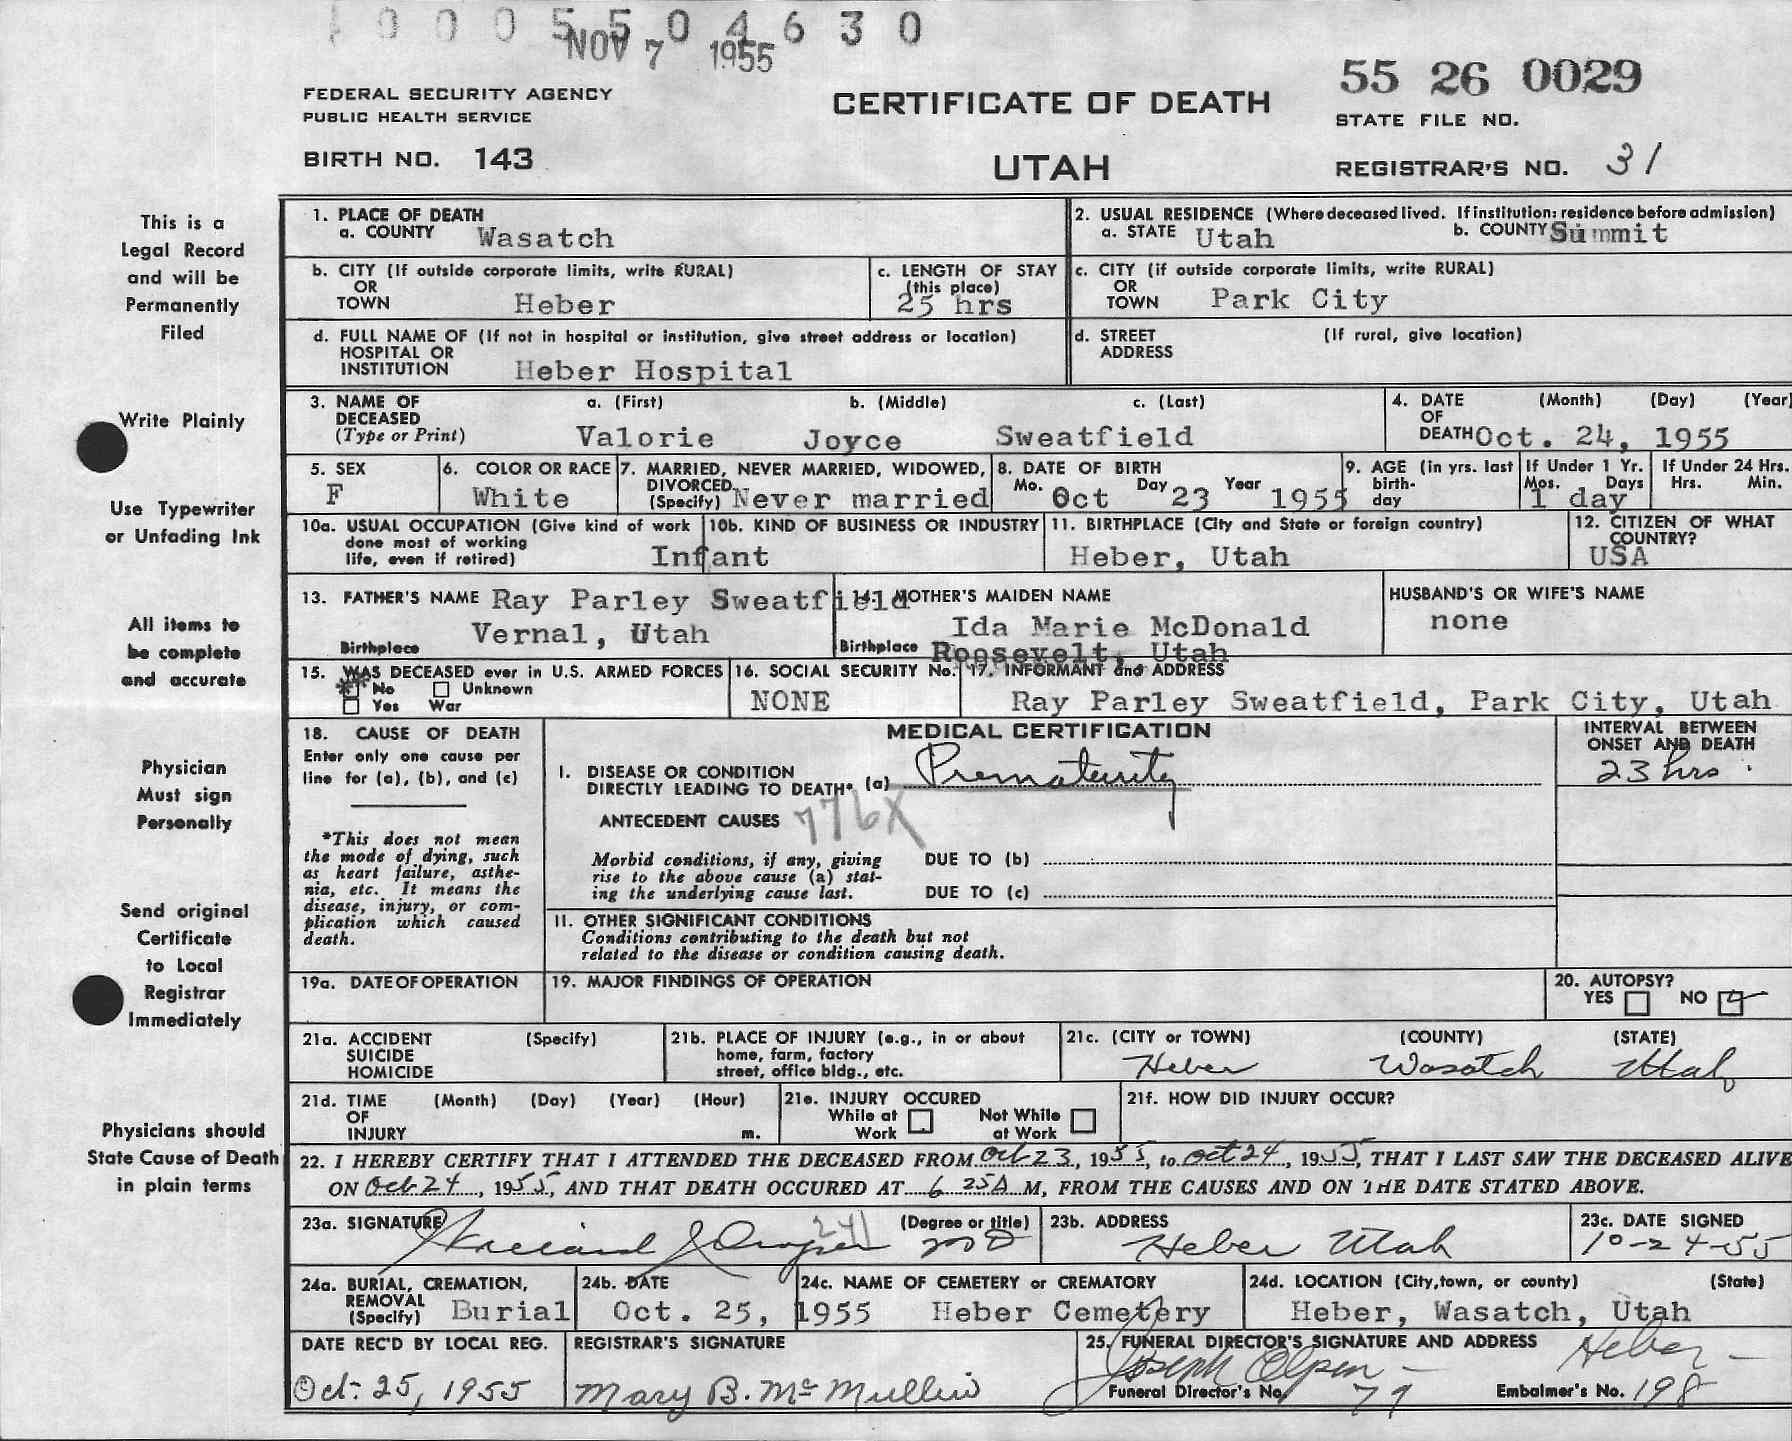 0 0 0 5 5 0 4 6 3 0
NOV 7 1955
55 26 0029
FEDERAL SECURITY AGENCY
PUBLIC HEALTH SERVICE
CERTIFICATE OF DEATH
STATE FILE NO.
BIRTH NO. 143
UTAH
REGISTRAR'S NO. 31
This is a
Legal Record
and will be
Permanently
Filed
Write Plainly
Use Typewriter
or Unfading Ink
All items to
be complete
and accurate
Physician
Must sign
Personally
Send original
Certificate
to Local
Registrar
Immediately
Physicians should
State Cause of Death
in plain terms
1. PLACE OF DEATH
a. COUNTY Wasatch
2. USUAL RESIDENCE (Where deceased lived. If institution: residence before admission)
a. STATE Utah b. COUNTY Summit
b. CITY (If outside corporate limits, write RURAL)
OR
TOWN Heber
c. LENGTH OF STAY
(this place)
25 hrs
c. CITY (if outside corporate limits, write RURAL)
OR
TOWN Park City
d. FULL NAME OF (If not in hospital or institution, give street address or location)
HOSPITAL OR
INSTITUTION Heber Hospital
d. STREET (If rural, give location)
ADDRESS
3. NAME OF a. (First) b. (Middle) c. (Last)
DECEASED
(Type or Print) Valorie Joyce Sweatfield
4. DATE (Month) (Day) (Year)
OF
DEATH Oct. 24, 1955
5. SEX
F
6. COLOR OR RACE
White
7. MARRIED, NEVER MARRIED, WIDOWED,
DIVORCED
(Specify) Never married
8. DATE OF BIRTH
Mo. Oct Day 23 Year 1955
9. AGE (in yrs. last
birth-
day
If Under 1 Yr.
Mos. Days
1 day
If Under 24 Hrs.
Hrs. Min.
10a. USUAL OCCUPATION (Give kind of work
done most of working
life, even if retired) Infant
10b. KIND OF BUSINESS OR INDUSTRY
11. BIRTHPLACE (City and State or foreign country)
Heber, Utah
12. CITIZEN OF WHAT
COUNTRY?
USA
13. FATHER'S NAME Ray Parley Sweatfield
Birthplace Vernal, Utah
14. MOTHER'S MAIDEN NAME
Ida Marie McDonald
Birthplace Roosevelt, Utah
HUSBAND'S OR WIFE'S NAME
none
15. WAS DECEASED ever in U.S. ARMED FORCES
No Unknown
Yes War
16. SOCIAL SECURITY No.
NONE
17. INFORMANT and ADDRESS
Ray Parley Sweatfield, Park City, Utah
18. CAUSE OF DEATH
Enter only one cause per
line for (a), (b), and (c)
*This does not mean
the mode of dying, such
as heart failure, asthe-
nia, etc. It means the
disease, injury, or com-
plication which caused
death.
MEDICAL CERTIFICATION
INTERVAL BETWEEN
ONSET AND DEATH
I. DISEASE OR CONDITION
DIRECTLY LEADING TO DEATH* (a) Prematurity 23 hrs.
ANTECEDENT CAUSES 776X
Morbid conditions, if any, giving
rise to the above cause (a) stat-
ing the underlying cause last.
DUE TO (b)
DUE TO (c)
II. OTHER SIGNIFICANT CONDITIONS
Conditions contributing to the death but not
related to the disease or condition causing death.
19a. DATE OF OPERATION
19. MAJOR FINDINGS OF OPERATION
20. AUTOPSY?
YES NO
21a. ACCIDENT (Specify)
SUICIDE
HOMICIDE
21b. PLACE OF INJURY (e.g., in or about
home, farm, factory
street, office bldg., etc.
21c. (CITY or TOWN) (COUNTY) (STATE)
Heber Wasatch Utah
21d. TIME (Month) (Day) (Year) (Hour)
OF
INJURY m.
21e. INJURY OCCURED
While at Work
Not While at Work
21f. HOW DID INJURY OCCUR?
22. I HEREBY CERTIFY THAT I ATTENDED THE DECEASED FROM Oct 23, 1955, to Oct 24, 1955, THAT I LAST SAW THE DECEASED ALIVE
ON Oct 24, 1955, AND THAT DEATH OCCURED AT 6 25A M, FROM THE CAUSES AND ON THE DATE STATED ABOVE.
23a. SIGNATURE (Degree or title)
MD
23b. ADDRESS
Heber Utah
23c. DATE SIGNED
10-24-55
24a. BURIAL, CREMATION,
REMOVAL
(Specify) Burial
24b. DATE
Oct. 25, 1955
24c. NAME OF CEMETERY or CREMATORY
Heber Cemetery
24d. LOCATION (City, town, or county) (State)
Heber, Wasatch, Utah
DATE REC'D BY LOCAL REG.
Oct. 25, 1955
REGISTRAR'S SIGNATURE
Mary B. McMullin
25. FUNERAL DIRECTOR'S SIGNATURE AND ADDRESS
Joseph Olpin - Heber -
Funeral Director's No. 77 Embalmer's No. 198